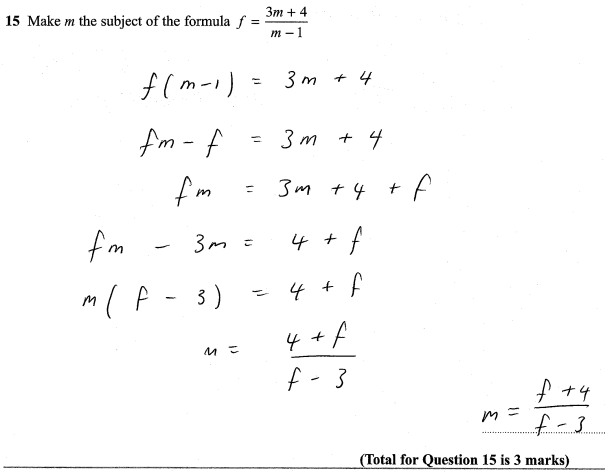 15 Make m the subject of the formula f = (3m + 4)/(m − 1)
f(m-1) = 3m + 4
fm - f = 3m + 4
fm = 3m + 4 + f
fm - 3m = 4 + f
m(f - 3) = 4 + f
m = (4 + f)/(f - 3)
m = (f + 4)/(f - 3)
(Total for Question 15 is 3 marks)